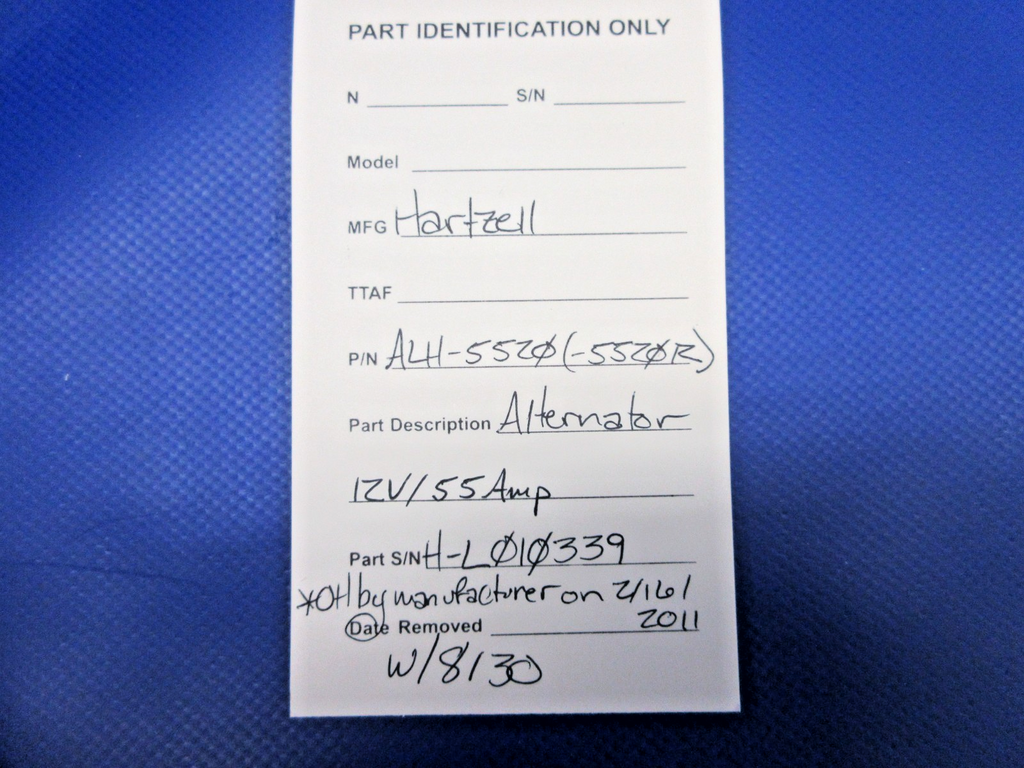 PART IDENTIFICATION ONLY
N S/N
Model
MFG Hartzell
TTAF
P/N ALH-552Ø(-552ØR)
Part Description Alternator
12V/55 Amp
Part S/N H-LØ1Ø339
*OH by manufacturer on 2/16/
2011
Date Removed
W/8130